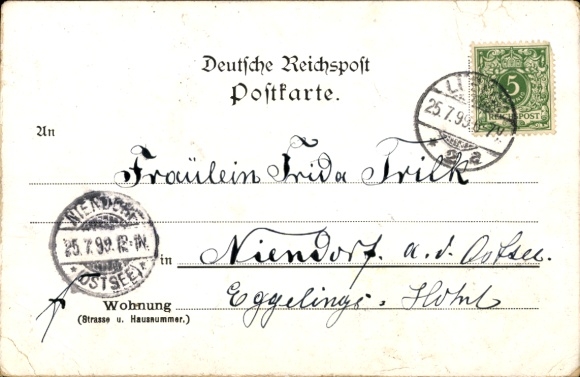 Deutsche Reichspost
Postkarte.
5
REICHSPOST
25.7.99.
2 a
An
Fräulein Frida Trilk
NIENDORF
25.7.99.12-1N.
* (OSTSEE) *
in Niendorf a. d. Ostsee.
Eggelings-Hotel
Wohnung
(Strasse u. Hausnummer.)